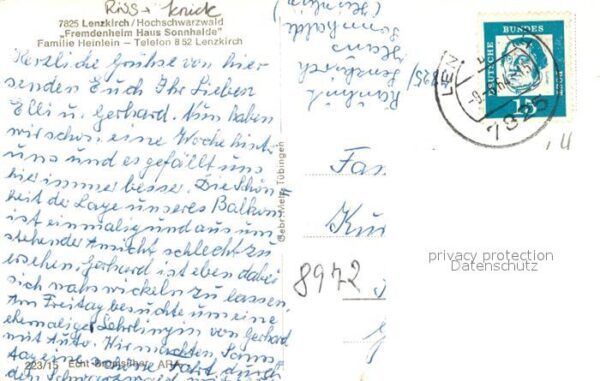 Riss + Knick
7825 Lenzkirch/Hochschwarzwald
„Fremdenheim Haus Sonnhalde"
Familie Heinlein – Telefon 8 52 Lenzkirch
Herzliche Grüße von hier
senden Euch Ihr Lieben
Elli u. Gerhard. Nun haben
wir schon eine Woche hinter
uns und es gefällt uns
hier immer besser. Die Schön
heit der Lage unseres Balkons
ist einmalig und aus um
stehender Ansicht schlecht zu
ersehen. Gerhard ist eben dabei
sich
zu lassen.
Am Freitag besuchte uns eine
ehemaliger Lehrling von Gerhard
mit Auto. Wir machten Sonn
tag eine Fahrt durch
den Schwarzwald
223/15 Echt Bromsilber
Gebr. Metz, Tübingen
7825 Lenzkirch
Haus
Sonnhalde
(Heinlein)
DEUTSCHE
BUNDES
15
LEN
7825
Fa
Ku
8972
privacy protection
Datenschutz